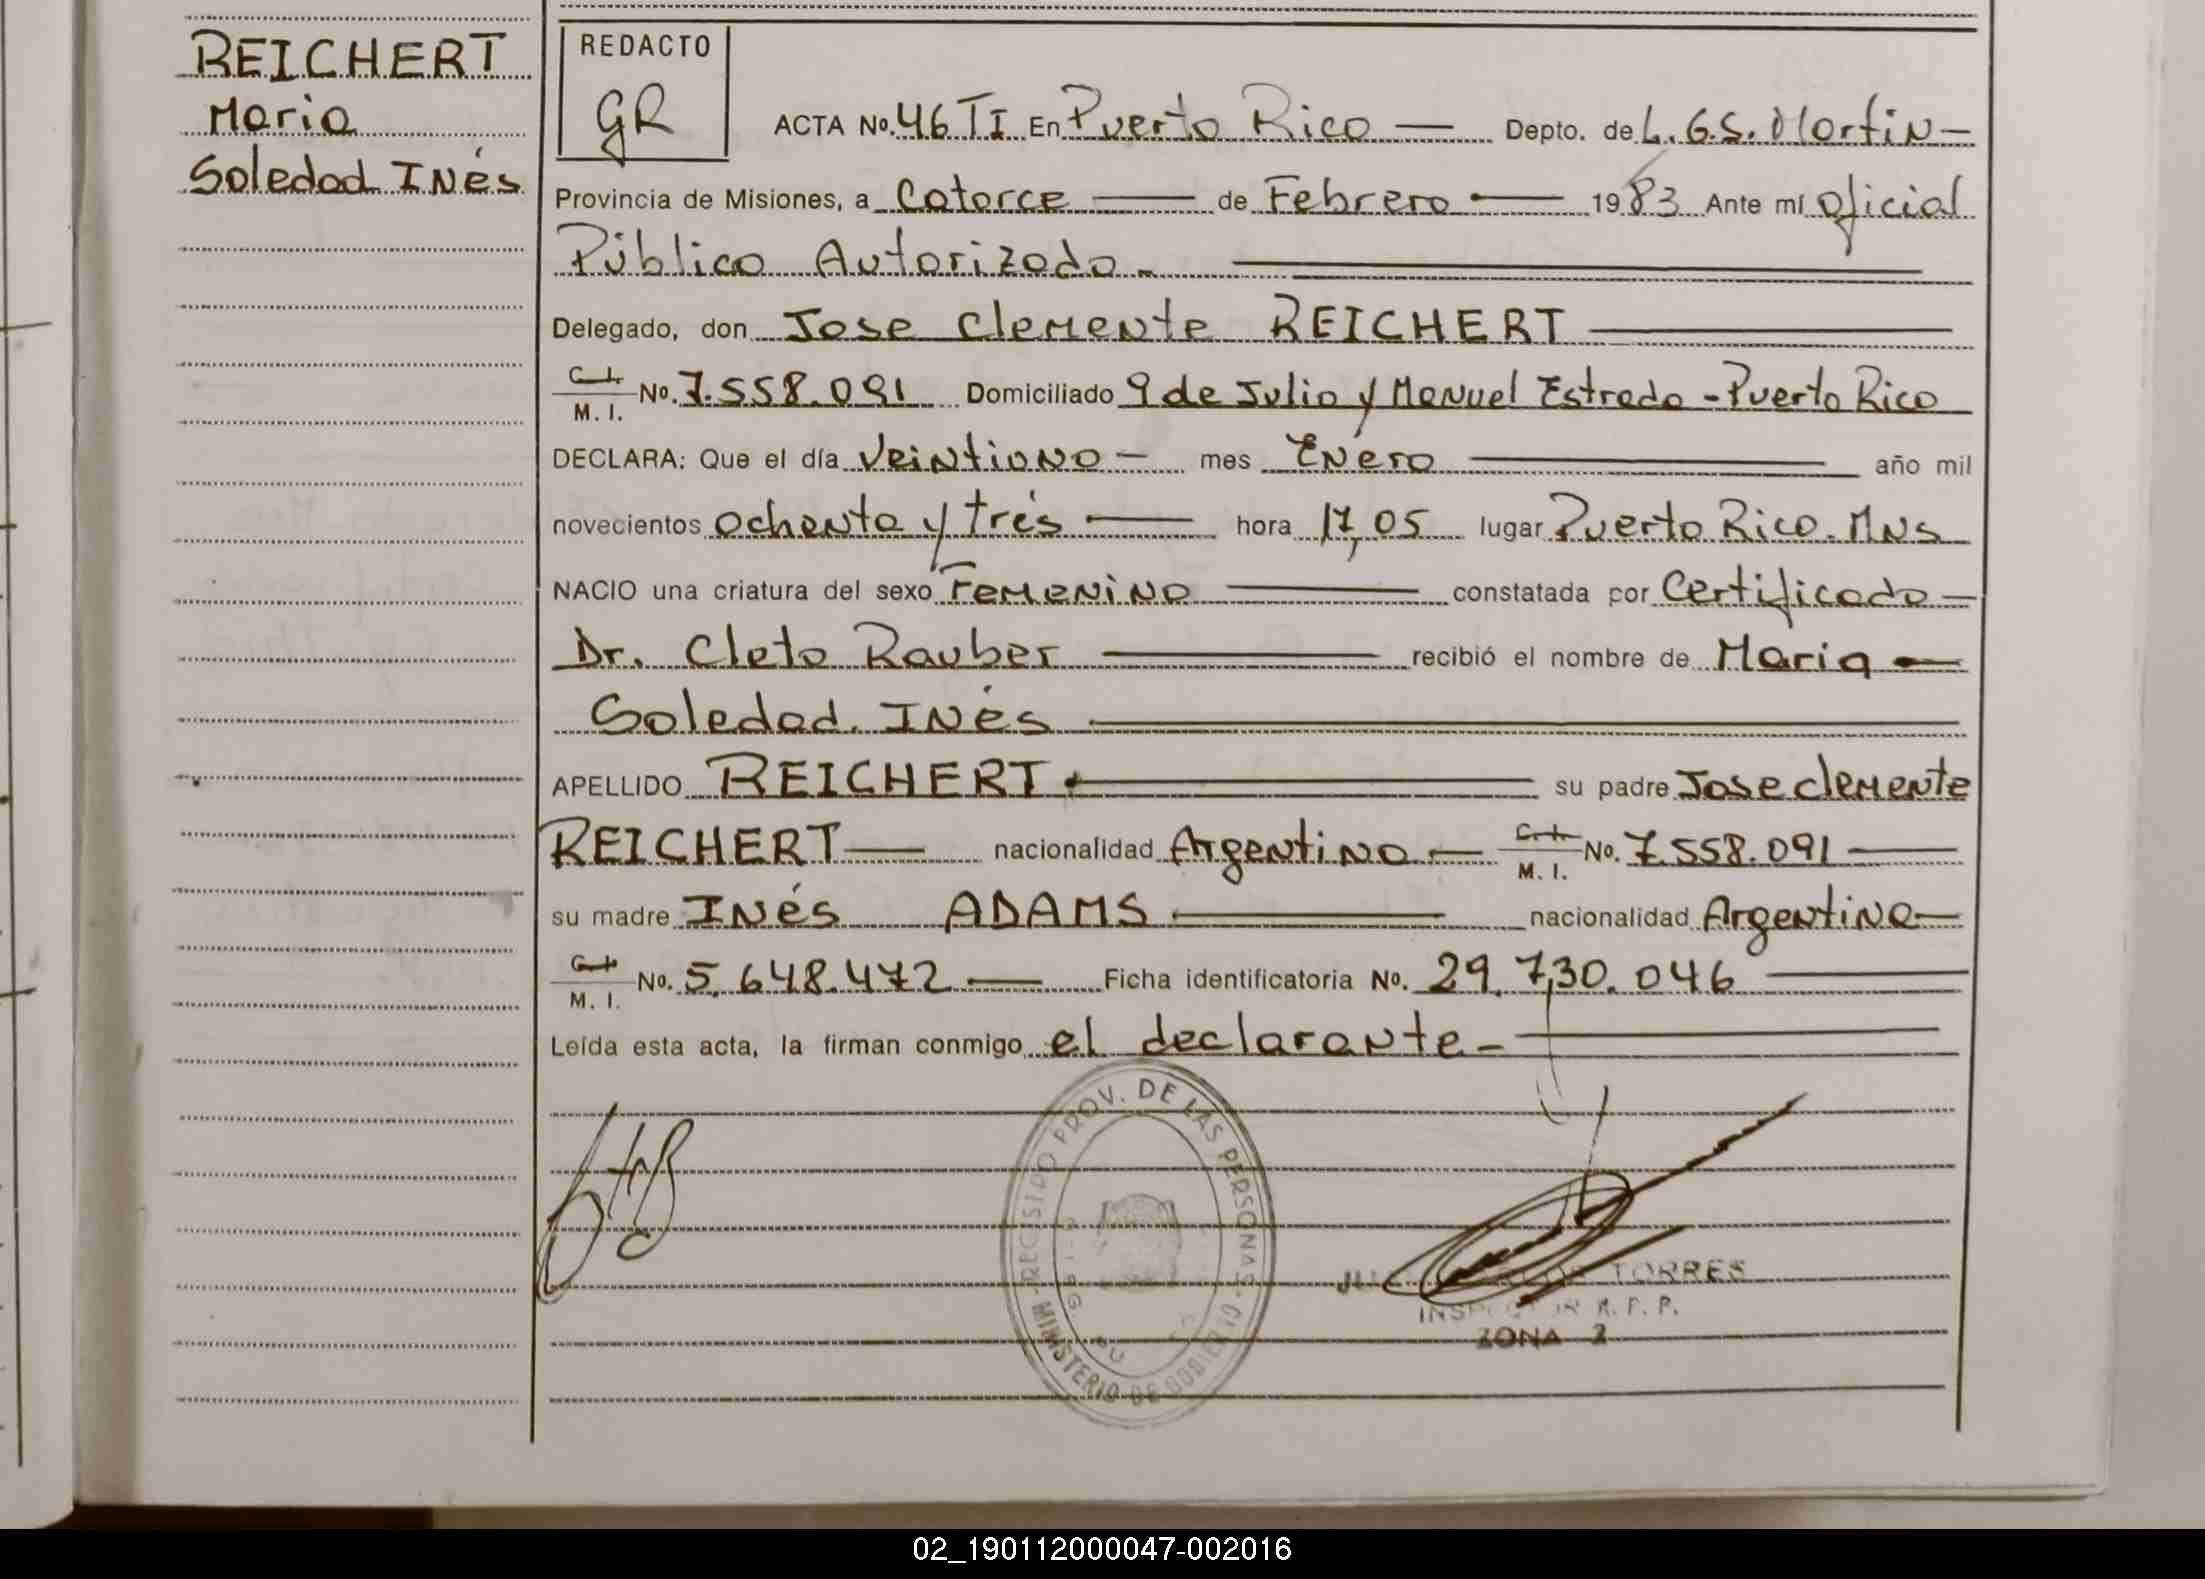 REICHERT
Maria
Soledad Inés
REDACTO
GR
ACTA No. 46 TI En Puerto Rico — Depto. de L. G. S. Martin —
Provincia de Misiones, a Catorce — de Febrero — 1983 Ante mí Oficial
Público Autorizado. —
Delegado, don Jose Clemente REICHERT —
C. I. / M. I. No. 7.558.091 Domiciliado 9 de Julio y Manuel Estrada - Puerto Rico
DECLARA: Que el día Veintiuno — mes Enero — año mil
novecientos ochenta y trés — hora 17,05 lugar Puerto Rico. MNS
NACIO una criatura del sexo Femenino — constatada por Certificado —
Dr. Cleto Rauber — recibió el nombre de Maria —
Soledad Inés —
APELLIDO REICHERT — su padre Jose Clemente
REICHERT — nacionalidad Argentino — C. I. / M. I. No. 7.558.091 —
su madre Inés ADAMS — nacionalidad Argentina —
C. I. / M. I. No. 5.648.472 — Ficha identificatoria No. 29.730.046 —
Leída esta acta, la firman conmigo el declarante —
REGISTRO PROV. DE LAS PERSONAS
MINISTERIO DE GOBIERNO
TORRES
INSPECTOR R. P. P.
ZONA 2
02_190112000047-002016